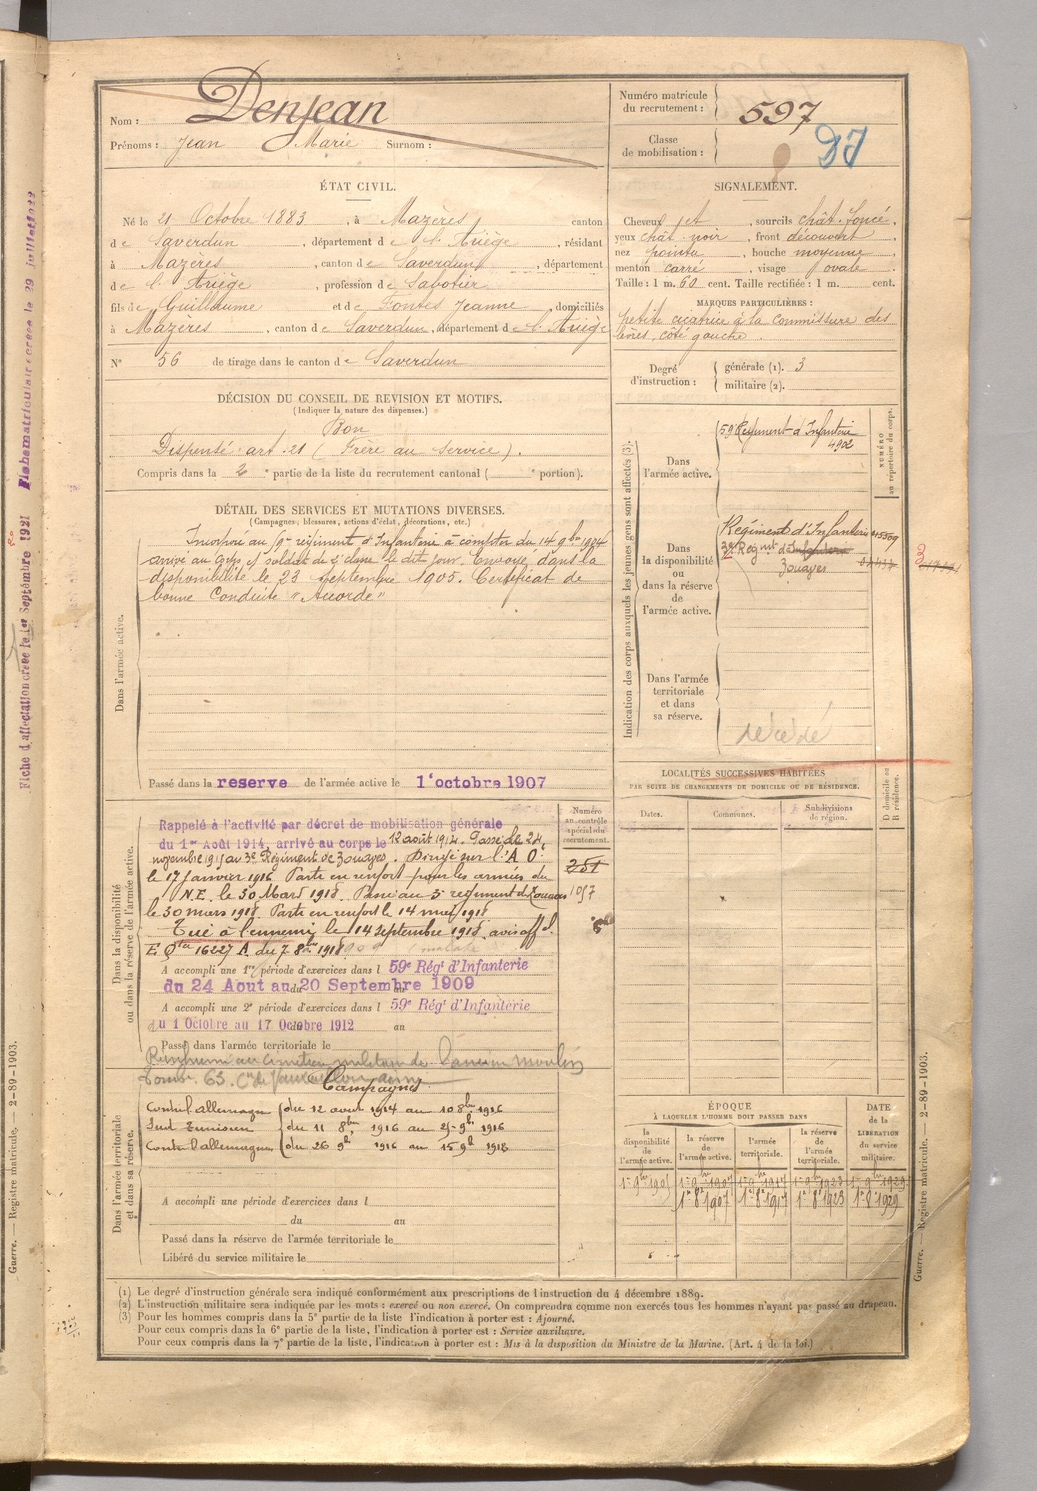 Nom : Denjean
Prénoms : Jean Marie Surnom :
Numéro matricule du recrutement : 597
Classe de mobilisation :
ÉTAT CIVIL.
Né le 21 Octobre 1883, à Mazères, canton
de Saverdun, département de l'Ariège, résidant
à Mazères, canton de Saverdun, département
de l'Ariège, profession de Sabotier
fils de Guillaume et de Fontes Jeanne, domiciliés
à Mazères, canton de Saverdun, département de l'Ariège
N° 56 de tirage dans le canton de Saverdun
SIGNALEMENT.
Cheveux jet, sourcils chât. foncé,
yeux chât. noir, front découvert,
nez pointu, bouche moyenne,
menton carré, visage ovale.
Taille : 1 m. 60 cent. Taille rectifiée : 1 m. cent.
MARQUES PARTICULIÈRES :
petite cicatrice à la commissure des
lèvres, côté gauche.
Degré d'instruction : générale (1). 3
militaire (2).
DÉCISION DU CONSEIL DE REVISION ET MOTIFS.
(Indiquer la nature des dispenses.)
Bon
Dispensé art. 21 (Frère au service).
Compris dans la 2e partie de la liste du recrutement cantonal ( e portion).
DÉTAIL DES SERVICES ET MUTATIONS DIVERSES.
(Campagnes, blessures, actions d'éclat, décorations, etc.)
Dans l'armée active.
Incorporé au 59e régiment d'Infanterie à compter du 14 9bre 1904
arrivé au corps & soldat de 2e classe le dit jour. Envoyé dans la
disponibilité le 23 Septembre 1905. Certificat de
bonne Conduite "Accordé"
Passé dans la reserve de l'armée active le 1er octobre 1907
Indication des corps auxquels les jeunes gens sont affectés (3).
NUMÉRO au répertoire du corps.
Dans l'armée active.
59e Régiment d'Infanterie
4902
Dans la disponibilité ou dans la réserve de l'armée active.
Régiment d'Infanterie
3e Regmt d'Infanterie
Zouaves
Dans l'armée territoriale et dans sa réserve.
décédé
LOCALITÉS SUCCESSIVES HABITÉES
PAR SUITE DE CHANGEMENTS DE DOMICILE OU DE RÉSIDENCE.
D domicile ou R résidence.
Dates. Communes. Subdivisions de région.
Dans la disponibilité ou dans la réserve de l'armée active.
Numéro au contrôle spécial du recrutement.
251
1057
Rappelé à l'activité par décret de mobilisation générale
du 1er Août 1914, arrivé au corps le 12 août 1914. Passé le 24
novembre 1915 au 3e Régiment de Zouaves. Dirigé sur l'A O.
le 17 janvier 1916 Parti en renfort pour les armées du
N.E. le 30 Mars 1918. Passé au 3e regiment de Zouaves
le 30 mars 1918. Parti en renfort le 14 mai 1918
Tué à l'ennemi le 14 septembre 1918, avis offel.
16227 A. du 7. 8bre 1918
A accompli une 1re période d'exercices dans l 59e Régt d'Infanterie
du 24 Aout au 20 Septembre 1909
A accompli une 2e période d'exercices dans l 59e Régt d'Infanterie
du 1 Octobre au 17 Octobre 1912 au
Passé dans l'armée territoriale le
Réinhumé au cimetière militaire de Vauxaillon moulin
Tombe 63.
Campagnes
Dans l'armée territoriale et dans sa réserve.
Contre l'allemagne du 12 aout 1914 au 10 8bre 1916
Sud Tunisien du 11 8bre 1916 au 25 9b 1916
Contre l'allemagne du 26 9b 1916 au 15 9b 1918
A accompli une période d'exercices dans l
du au
Passé dans la réserve de l'armée territoriale le
Libéré du service militaire le
ÉPOQUE
À LAQUELLE L'HOMME DOIT PASSER DANS
DATE DE LA LIBÉRATION du service militaire.
la disponibilité de l'armée active. la réserve de l'armée active. l'armée territoriale. la réserve de l'armée territoriale.
1er 9bre 1905 1er 9bre 1907 1er 9bre 1917 1er 9bre 1923 1er 9bre 1929
1er 8e 1907 1er 8e 1917 1er 8e 1923 1er 8e 1929
(1) Le degré d'instruction générale sera indiqué conformément aux prescriptions de l'instruction du 4 décembre 1889.
(2) L'instruction militaire sera indiquée par les mots : exercé ou non exercé. On comprendra comme non exercés tous les hommes n'ayant pas passé au drapeau.
(3) Pour les hommes compris dans la 5e partie de la liste l'indication à porter est : Ajourné.
Pour ceux compris dans la 6e partie de la liste, l'indication à porter est : Service auxiliaire.
Pour ceux compris dans la 7e partie de la liste, l'indication à porter est : Mis à la disposition du Ministre de la Marine. (Art. 4 de la loi.)
Guerre. — Registre matricule. — 2-89-1903.
Fiche d'affectation créée le 1er Septembre 1921
Fiche matriculaire créée le 29 juillet
Guerre. — Registre matricule. — 2-89-1903.